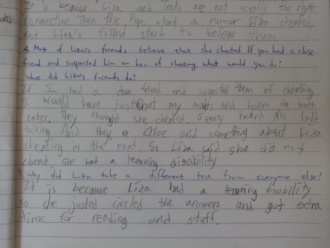 It is because Liza and tests are not exactly the right
connection. Then the
start a rumor Liza cheated,
but Liza's friend start to believe them.
4. Most of Liza's friends believe that she cheated. If you had a close
friend and suspected him or her of cheating, what would you do?
What did Liza's friends do?
If I had a close friend and them of cheating
I would have just my and to both
later, they thought she cheated.
talking. And they said something about Liza
cheating in the test. So Liza said she did not
cheat, she had a learning disability.
5. Why did Liza take a different test from everyone else?
It is because Liza had a learning disability
so she just circled the answers and got extra
time for reading and stuff.